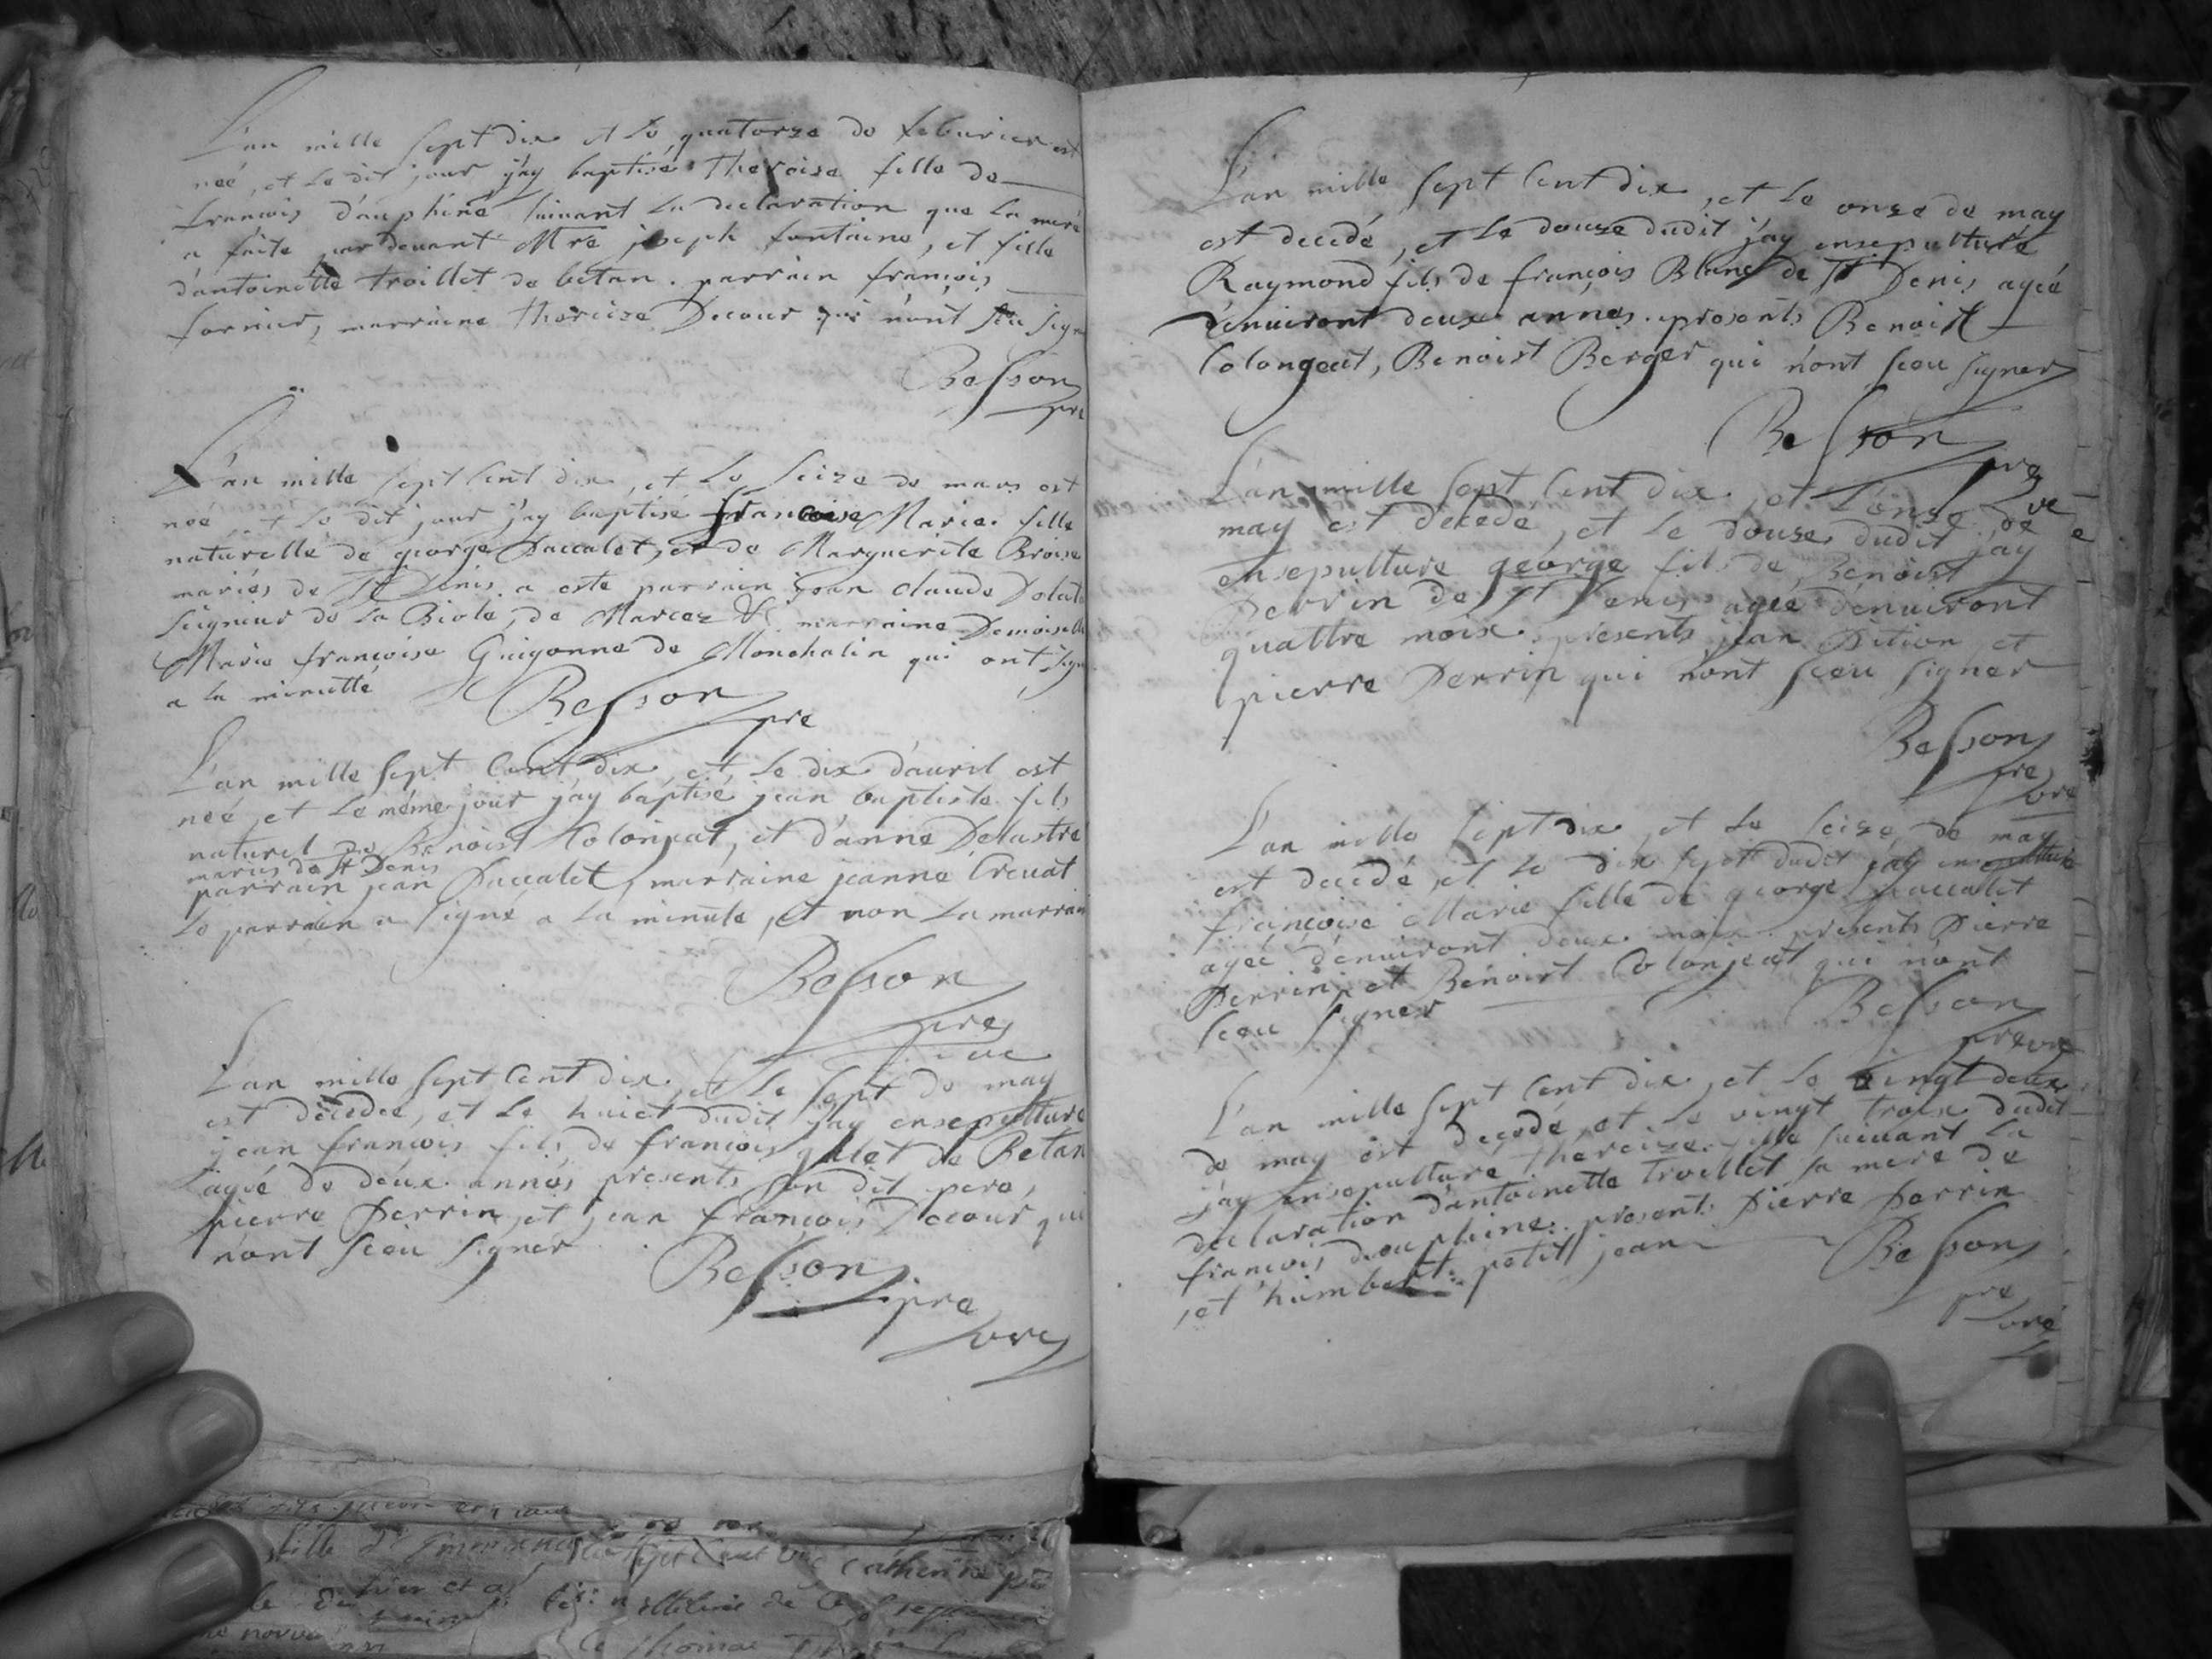 L'an mille sept dix et le quatorze de feburier est
neé, et le dit jour j'ay baptisé Theroise fille de
francois d'auphiné suiuant la declaration que la mere
a faite par deuant Mre joseph fontaine, et fille
d'antoinette troillet de betan. parrain francois
fornier, marraine Theroise Decour qui n'ont sceu signer
Besson
pre
L'an mille sept Cent dix, et le seize de mars est
neé et le dit jour j'ay baptisé francoise Marie fille
naturelle de george Paccalet, et de Marguerite Broise
mariés de St Denis a este parrain jean claude
seigneur de la Biole, de Marcez &c marraine Demoiselle
Marie francoise Guigonne de Monthalin qui ont signé
a la minutte
Besson
pre
L'an mille sept Cent dix, et le dix d'auril est
neé, et le méme jour j'ay baptisé jean baptiste fils
naturel de Benoist Colonjeat, et d'anne Delastre
mariés de St Denis
parrain jean Paccalet, marraine jeanne Creuat
le parrain a signé a la minute, et non la marraine
Besson
pre
ure
L'an mille sept Cent dix, et le sept de may
est decedeé, et le huict dudit j'ay ensepulturé
jean francois fils de francois galet de Betan
ageé de deux annés presents son dit pere,
pierre Perrin, et jean francois Decour qui
n'ont sceu signer
Besson
pre
ure
L'an mille sept Cent dix, et le onze de may
est decedé, et le douze dudit j'ay ensepulturé
Raymond fils de francois Blanc de St Denis ageé
d'enuiront deux annés. presents Benoist
Colongeat, Benoist Berger qui n'ont sceu signer
Besson
pre
ure
L'an mille sept Cent dix, et l'onze de
may est décédé, et le douze dudit j'ay
ensepulture george fils de Benoist
Perrin de St Denis ageé d'enuiront
quattre moix. presents jean Pition et
pierre Perrin qui n'ont sceu signer
Besson
pre
ure
L'an mille sept dix, et le seize de may
est decedé, et le dix sept dudit j'ay ensepulture
francoise Marie fille de george Paccalet
ageé d'enuiront deux moix. presents Pierre
Perrin, et Benoist Colonjeat qui n'ont
sceu signer
Besson
preure
L'an mille sept Cent dix, et le vingt deux
de may est decedé, et le vingt troix dudit
j'ay ensepulture Theroize fille suiuant la
declaration d'antoinette troillet sa mere de
francois dauphine. presents Pierre Perrin
, et humbert petit jean
Besson
pre
ure